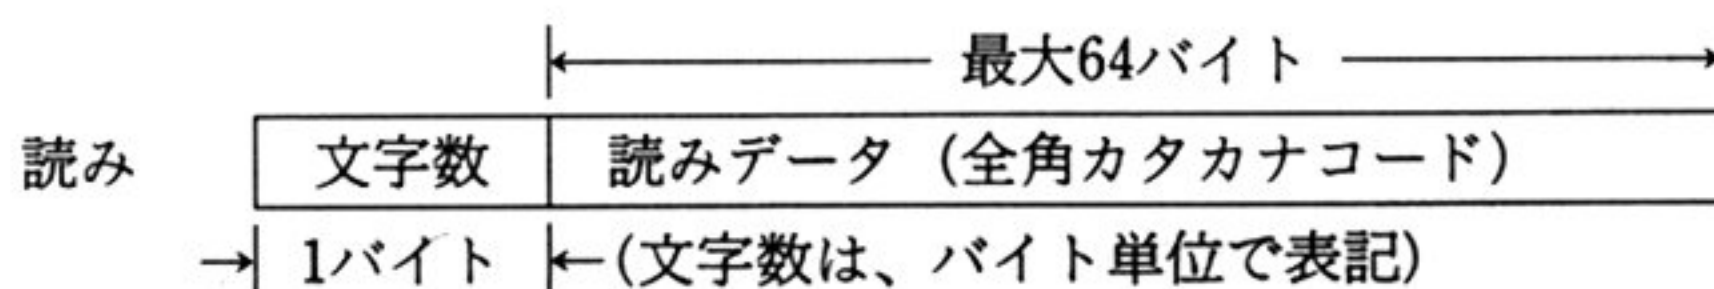 最大64バイト
読み 文字数 読みデータ（全角カタカナコード）
1バイト (文字数は、バイト単位で表記)